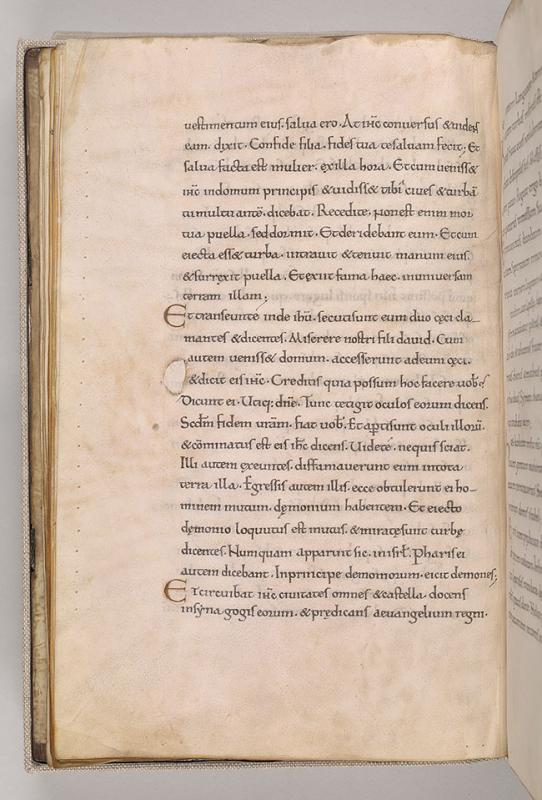 uestimentum eius. salua ero. At ihc conuersus & uidens
eam. dixit. Confide filia. fides tua te saluam fecit; Et
salua facta est mulier. ex illa hora. Et cum ueniss&
ihc in domum principis & uidiss& tibicines & turbā
tumultuantē. dicebat. Recedite. non est enim mor
tua puella. sed dormit. Et deridebant eum. Et cum
eiecta ess& turba. intrauit & tenuit manum eius.
& surrexit puella. Et exiit fama haec. in uniuersam
terram illam;
Et transeunte inde ihu. secuti sunt eum duo cęci cla
mantes & dicentes. Miserere nostri fili dauid. Cum
autem ueniss& domum. accesserunt ad eum cęci.
& dicit eis ihc. Creditis quia possum hoc facere uobis
Dicunt ei. Utiq; dne. Tunc tetigit oculos eorum dicens.
Scdm fidem uram. fiat uob. Et apti sunt oculi illorū
& cōminatus est eis ihc dicens. Uidete. ne quis sciat.
Illi autem exeuntes. diffamauerunt eum in tota
terra illa. Egressis autem illis. ecce obtulerunt ei ho
minem mutum. dęmonium habentem. Et eiecto
dęmonio loquutus est mutus. & miratę sunt turbę
dicentes. Numquam apparuit sic. in isrl. Pharisei
autem dicebant. In principe demoniorum. eicit demones;
Et circuibat ihc ciuitates omnes & castella. docens
in synagogis eorum. & prędicans aeuangelium regni.